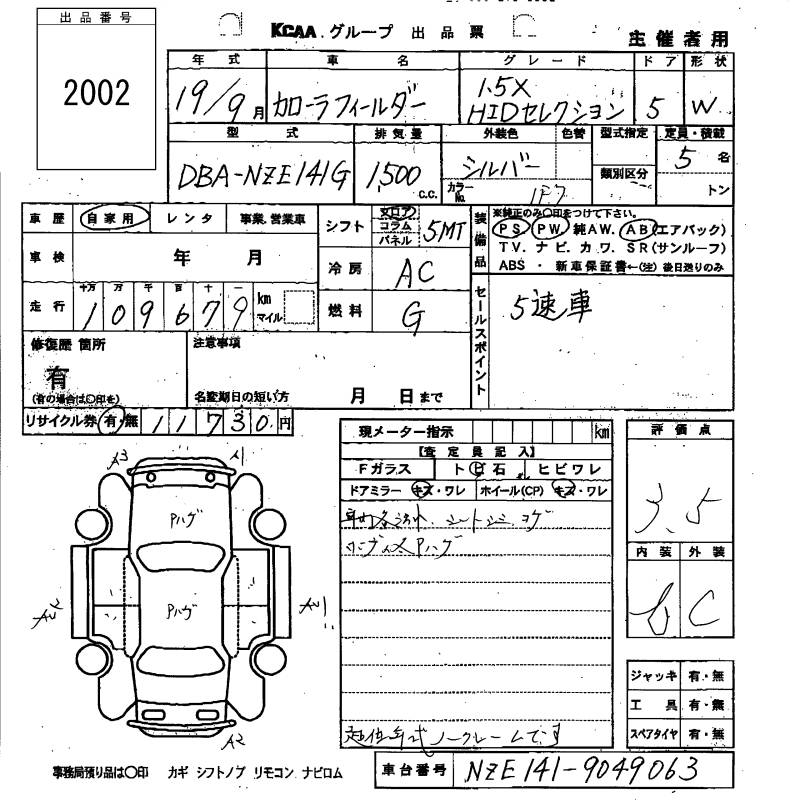 出品番号
2002
KCAA.グループ 出品票
主催者用
年式 車名 グレード ドア 形状
19/9月 カローラフィールダー 1.5X HIDセレクション 5 W
型式 排気量 外装色 色替 型式指定 定員・積載
DBA-NZE141G 1,500 c.c. シルバー 類別区分 5名
カラーNo. 1F7 トン
車歴 自家用 レンタ 事業、営業車
シフト フロア コラム パネル 5MT
装備品 ※純正のみ○印をつけて下さい。
PS PW 純AW. AB(エアバック)
TV. ナビ. カワ. SR(サンルーフ)
ABS ・ 新車保証書←(注) 後日送りのみ
車検 年 月
冷房 AC
走行 十万 万 千 百 十 一
109679 km マイル
燃料 G
セールスポイント 5速車
修復歴 箇所
有
(有の場合は○印を)
注意事項
名変期日の短い方 月 日まで
リサイクル券 有・無 11730円
現メーター指示 km
【査定員記入】
Fガラス トビ石 ヒビワレ
ドアミラー キズ・ワレ ホイール(CP) キズ・ワレ
ルーフ.ボンネットPハゲ
低年式ノークレームです
評価点
3.5
内装 外装
C
ジャッキ 有・無
工具 有・無
スペアタイヤ 有・無
A3 A1
Pハゲ
Pハゲ
A2
事務局預り品は○印 カギ シフトノブ リモコン ナビロム
車台番号 NZE141-9049063